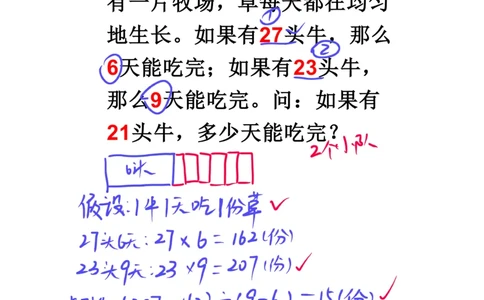 有一片牧场，草每天都在均匀
①
地生长。如果有27头牛，那么
②
6天能吃完；如果有23头牛，
那么9天能吃完。问：如果有
21头牛，多少天能吃完？
2个小队
6天
假设：1牛1天吃1份草✓
27头6天：27×6=162(份)
23头9天：23×9=207(份)✓
(207-162)÷(9-6)=15(份)✓